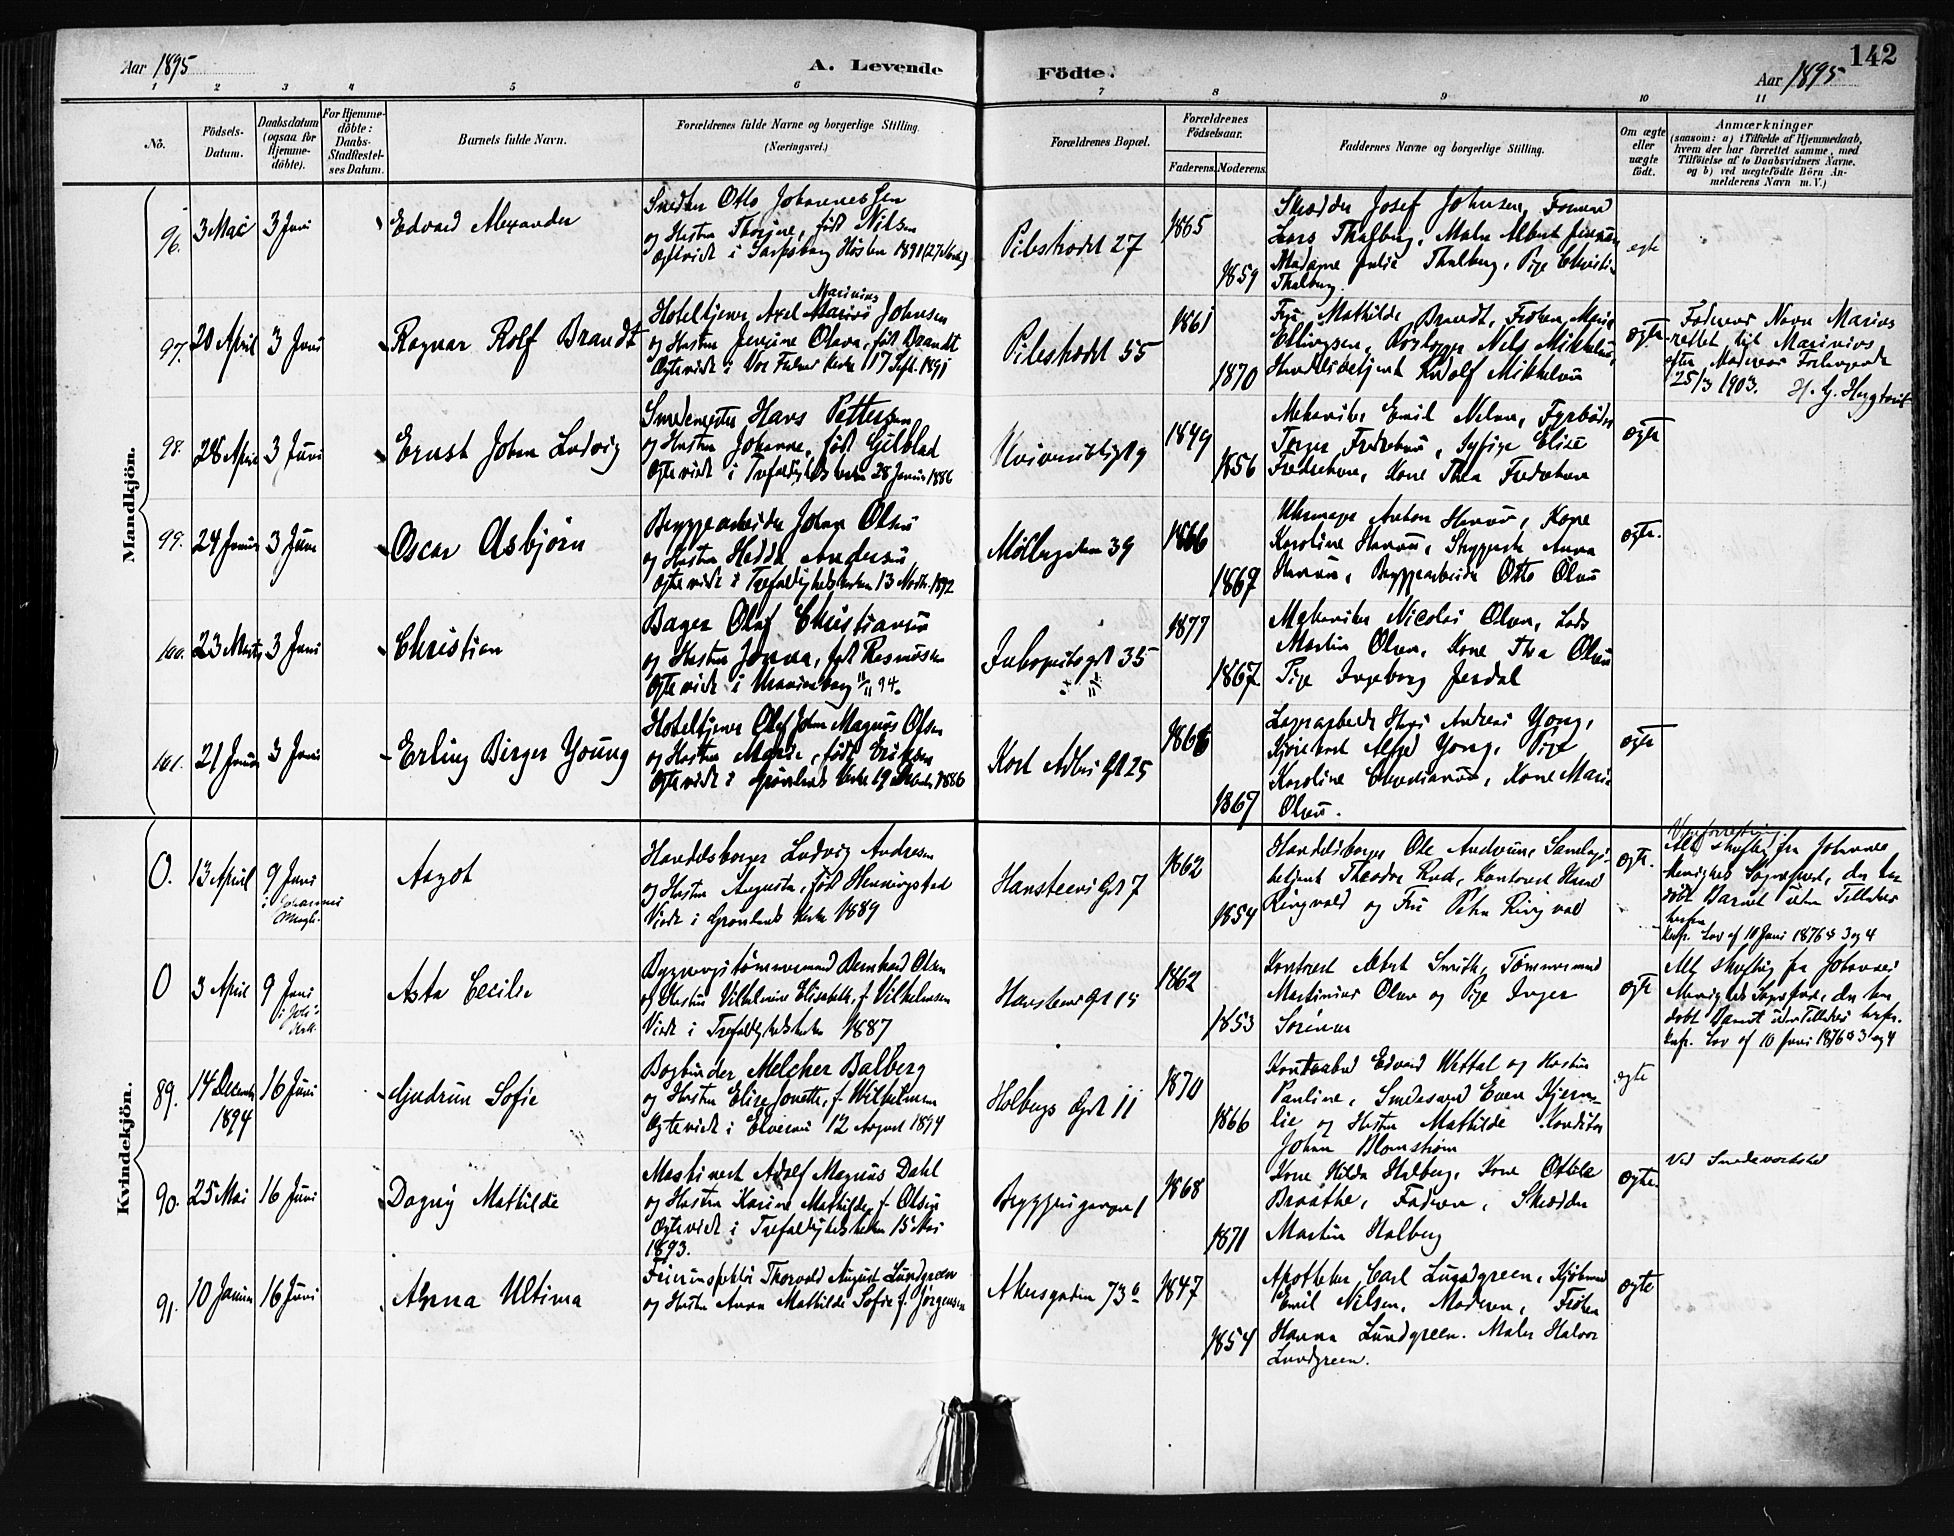 142
Aar 1895
A. Levende Födte.
Aar 1895
1 2 3 4 5 6 7 8 9 10 11
No.
Födsels-
Datum.
Daabsdatum
(ogsaa for
Hjemme-
döbte).
For Hjemme-
döbte:
Daabs-
Stadfæstel-
ses Datum.
Barnets fulde Navn.
Forældrenes fulde Navne og borgerlige Stilling.
(Næringsvei.)
Forældrenes Bopæl.
Forældrenes
Födselsaar.
Faderens. Moderens.
Faddernes Navne og borgerlige Stilling.
Om ægte
eller
uægte
födt.
Anmærkninger
(saasom: a) i Tilfælde af Hjemmedaab,
hvem der har forrettet samme, med
Tilföielse af to Daabsvidners Navne.
og b) ved uægtefödte Börn An-
melderens Navn m. V.)
Mandkjön.
96. 3 Mai 3 Juni
Edvard Alexander
Snedker Otto Johannessen
og Hustru Thorine, født Nilsen
Ægteviet i Sarpsborg Høsten 1891
Pilestrædet 27
1865
1859
Skrædder Josef Johnsen, Formand
Lars Thalberg, Maler Albert
Madame Julie Thalberg, Pige
Thalberg.
egte
97. 20 April 3 Juni
Ragnar Rolf Brandt
Marinius
Hoteltjener Axel Marius Johnsen
og Hustru Jensine Olava, født Brandt
Ægteviet i Vor Frelser Kirke 17 Sept. 1891
Pilestrædet 55
1861
1870
Fru Mathilde Brandt, Frøken Marie
Ellingsen, Nels Mikkelsen,
Handelsbetjent Rudolf Mikkelsen
egte
Faderens Navn Marius
rettet til Marinius
efter Moderens Forlangende
25/3 1903.
98. 28 April 3 Juni
Ernst Johan Ludvig
Smedemester Hans Pettersen
og Hustru Johanne, født Gilblad
Ægteviet i Trefoldigheds kirken 28 Januar 1886
Universitetsgt 9
1849
1856
Mekaniker Emil Nelsen, Fyrbøder
Fredriksen, Sypige Elise
Fredriksen, Kone Thea Fredriksen
egte
99. 24 Januar 3 Juni
Oscar Asbjörn
Bryggearbeider Johan Olsen
og Hustru Hedda Andersen
Ægteviet i Trefoldighedskirken 13 Novbr. 1892
Møllergaden 39
1866
1867
Uhrmager Anton Hansen, Kone
Karoline Hansen, Anna
Hansen, Bryggearbeider Otto Olsen
egte.
100. 23 Marts 3 Juni
Christian
Bager Olaf Christiansen
og Hustru Janna, født Rasmussen
Ægteviet i 11/11 94.
35
1877
1867
Mekaniker Nicolai Olsen, Lods
Martin Olsen, Kone Thea Olsen
Pige Ingeborg Jerdal
101. 21 Januar 3 Juni
Erling Birger Young
Hoteltjener Olaf Johan Magnus Olsen
og Hustru Marie, født Eriksen
Ægteviet i Grønlands Kirke 19 1886
Karl Johns Gt 25
1866
1867
Andreas Yong,
Alfred Yong, Pige
Karoline Christiansen, Kone Marie
Olsen.
egte
Kvindekjön.
0. 13 April 9 Juni
i Johannes
Aagot
Handelsborger Ludvig Andresen
og Hustru Augusta, født Henningstad
Viede i Grønlands Kirke 1889
Hansteens Gt 7
1862
1854
Handelsborger Ole Andersen,
betjent Theodor Rud, Kontorist Harald
Ringvold og Fru Petra Ringvold
egte.
Att. skriftlig fra Johannes
Menigheds Sogneprest, der har
døbt Barnet uden Tilladelse
herfra
Kfr. Lov af 10 Juni 1876 § 3 og 4
0 3 April 9 Juni
Asta Cecilie
Bygningstømmermand Bernhard Olsen
og Hustru Vilhelmine Elisabeth, f. Vilhelmsen
Viede i Trefoldighedskirken 1887
Hansteens Gt 15
1862
1853
Kontorist Albert Smith, Tømmermand
Martinius Olsen og Pige Inger
Sørensen
egte
Att. skriftlig fra Johannes
Menigheds Sogneprest, der har
døbt Barnet uden Tilladelse herfra.
Kfr. Lov af 10 Juni 1876 § 3 og 4
89. 14 Decemb 1894 16 Juni
Gudrun Sofie
Bogbinder Melcher Balberg
og Hustru Elise Jonette, f. Wilhelmsen
Ægteviet i Elverum 12 August 1894
Holbergs Gt 11
1870
1866
Edvard Wettal og Hustru
Pauline, Smedesvend Even Kjern-
lie og Hustru Mathilde Konditor
Johan Blomstrøm
egte
90. 25 Mai 16 Juni
Dagny Mathilde
Maskinist Adolf Magnus Dahl
og Hustru Karine Mathilde, f. Olsen
Ægteviet i Trefoldighedskirken 15 Mai
1893.
1868
1871
Kone Hilda Halberg, Kone Othilie
Braathe, Faderen, Skrædder
Martin Halberg
egte.
Ved Smedeværksted
91. 10 Januar 16 Juni
Anna Ultima
Feierinspektør Thorvald August Lundgreen
og Hustru Anna Mathilde Sofie f. Jørgensen
Akersgaden 73 b
1847
1854
Apotheker Carl Lundgreen, Kjøbmand
Emil Nilsen, Moderen, Frøken
Hanna Lundgreen. Maler Halvor
Lundgreen.
egte